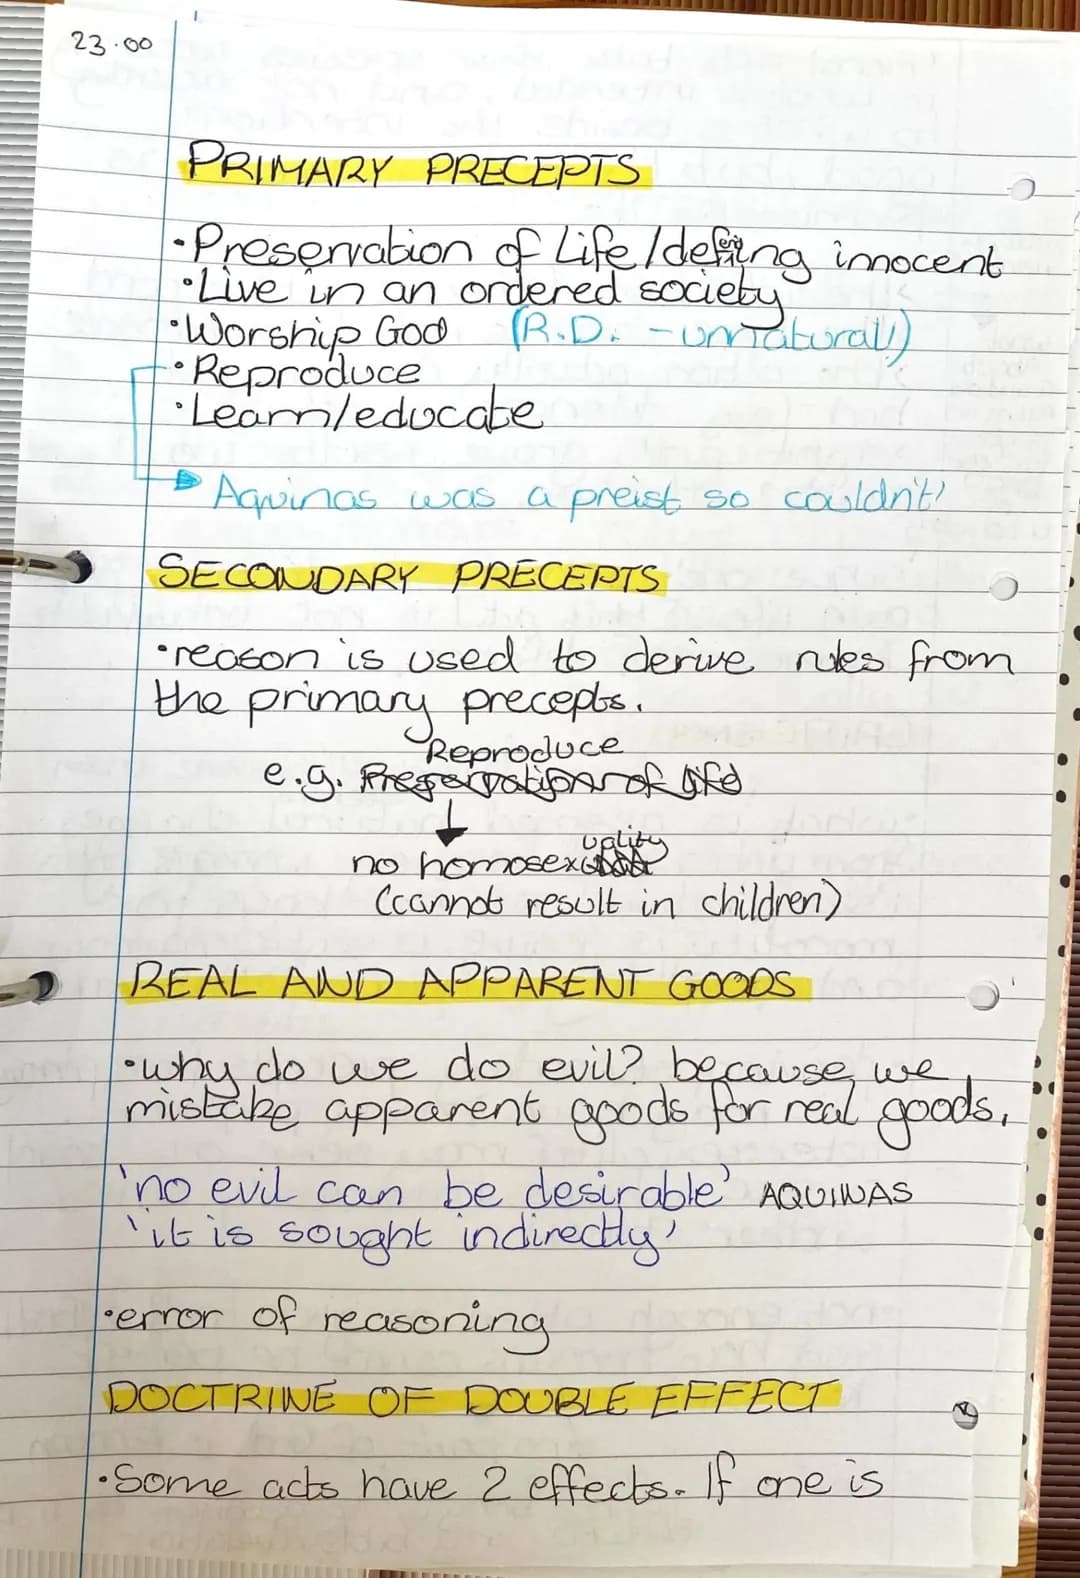 23.00
PRIMARY PRECEPTS
•Preservation of Life/defending innocent
•Live in an ordered society
•Worship God (R.D. - unnatural!)
•Reproduce
•Learn/educate
Aquinas was a preist so couldn't!
SECONDARY PRECEPTS
•reason is used to derive rules from
the primary precepts.
Reproduce
e.g. Preservation of life
no homosexuality
(cannot result in children)
REAL AND APPARENT GOODS
•why do we do evil? because we
mistake apparent goods for real goods.
'no evil can be desirable' AQUINAS
'it is sought indirectly'
•error of reasoning
DOCTRINE OF DOUBLE EFFECT
•Some acts have 2 effects. If one is